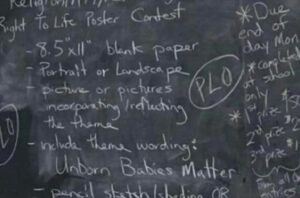 Right To Life Poster Contest
- 8.5"x11" blank paper
- Portrait or Landscape
- picture or pictures
incorporating/reflecting
the theme
- include theme wording:
Unborn Babies Matter
- pencil sketch/shading OR
PLO
*Due
end of
day Mon
*complete
at school
only
* 1st prize
2nd prize
3rd prize
entries